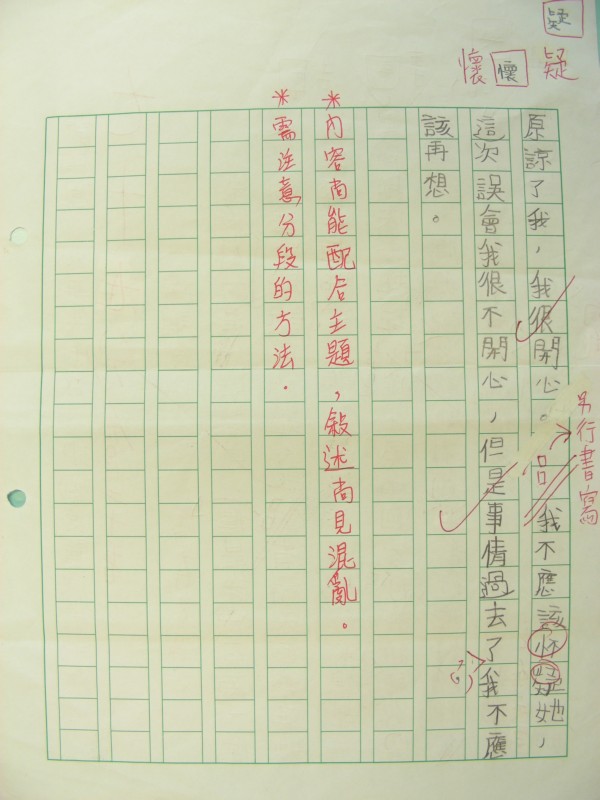 疑
疑
懷懷
另行書寫
原諒了我，我很開心。我不應該怀疑她，
這次誤會我很不開心，但是事情過去了我不應
該再想。
*內容尚能配合主題，敍述尚見混亂。
*需注意分段的方法．